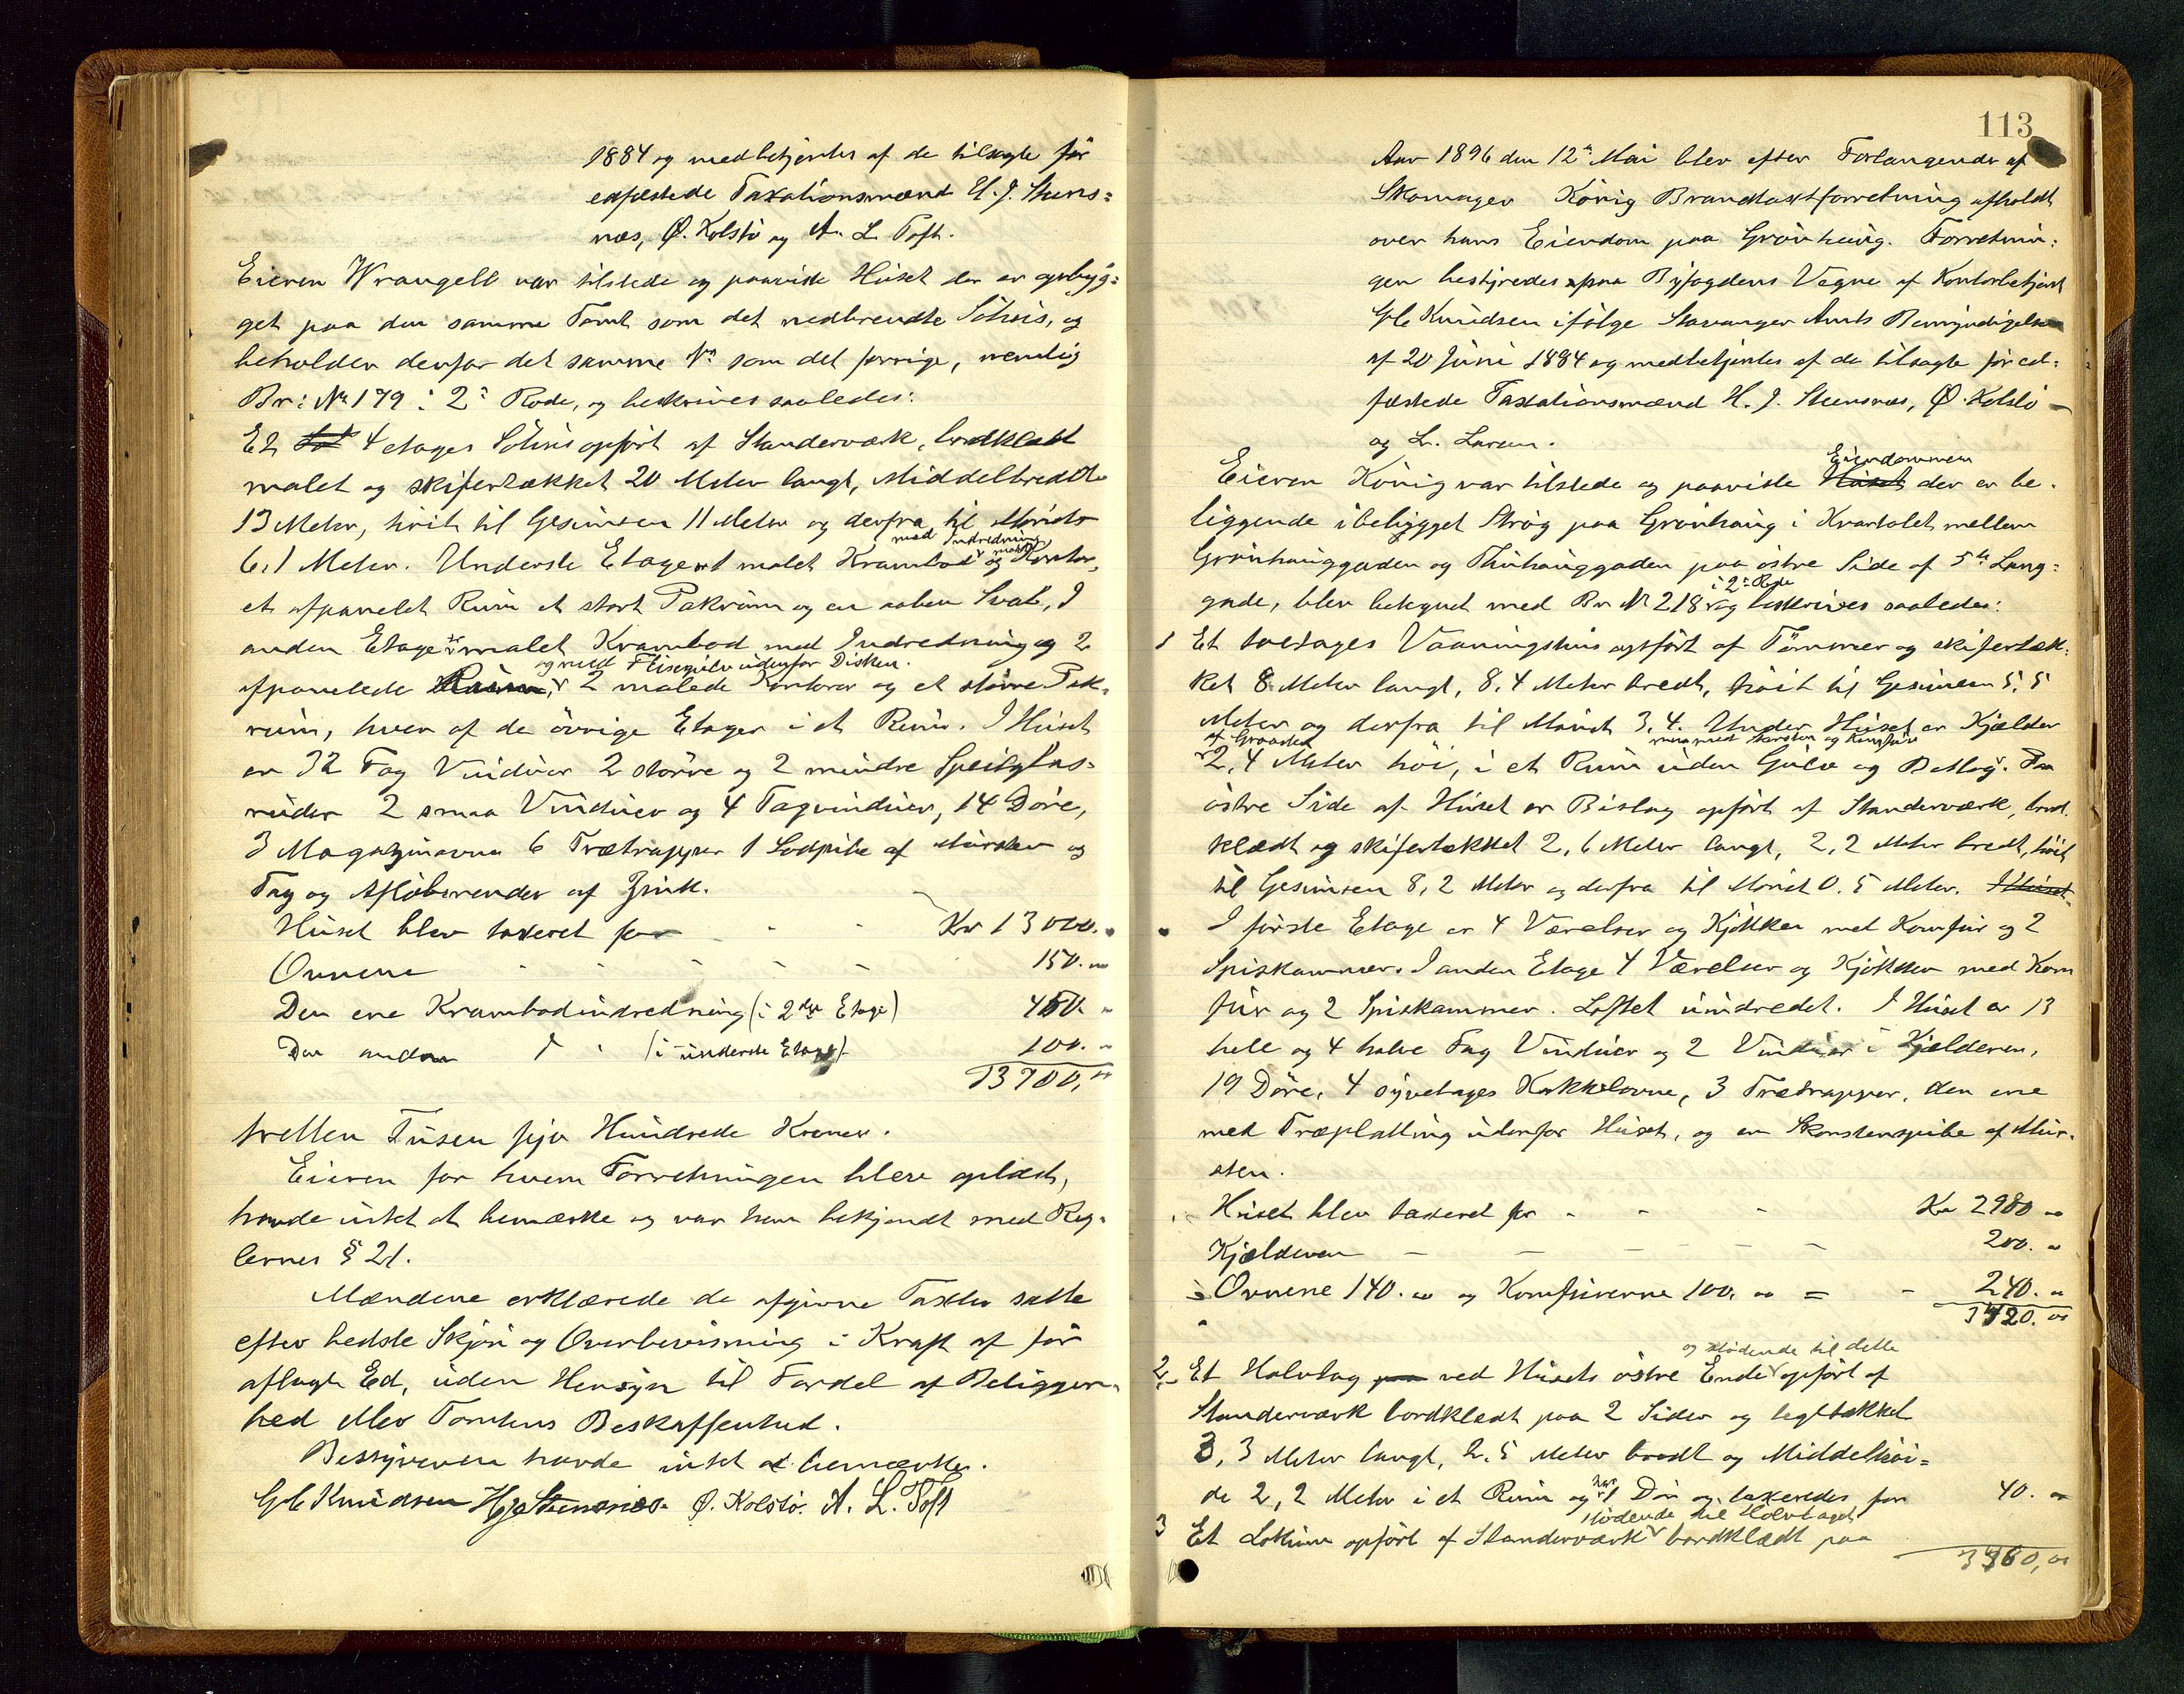 1884 og medbetjentes af de tilsagte før
edfæstede Taxationsmænd H. J. Stens=
næs, Ø. Kolstø og A. L. Toft.
Eieren Wrangell var tilstede og paaviste Huset der er opbyg=
get paa den samme Tomt som det nedbrendte Søhus, og
beholder derfor det samme No som det forrige, nemlig
Br: No 179 i 2n Rode, og beskrives saaledes:
Et 4 etages Søhus opført af Standerværk, bordklædt
malet og skifertækket 20 Meter langt, Middelbredde
13 Meter, høit til Gesimsen 11 Meter og derfra til Mønet
6,1 Meter. Underste Etage 1 malet Krambod med Indredning og malet Kontor,
et afpanelet Rum et stort Pakrum og en aaben Sval, I
anden Etage er malet Krambod med Indredning og 2
afpanelede Rum, og med Flisegulv udenfor Disken. 2 malede Kontorer og et større Pak=
rum, hver af de øvrige Etager i et Rum. I Huset
er 32 Fag Vinduer 2 større og 2 mindre Speilglas=
ruder 2 smaa Vinduer og 4 Tagvinduer, 14 Døre,
3 Magazinovne 6 Trætrapper 1 Lodpibe af Mursten og
Tag og Afløbsrender af Zink.
Huset blev taxeret for - - - Kr 13000. "
Ovnene - - - - - 150. "
Den ene Krambodindredning (i 2den Etage) 450. "
Den anden " " (i underste Etage) 100. "
13700, "
tretten Tusen syv Hundrede Kroner.
Eieren for hvem Forretningen blev oplæst,
havde intet at bemærke og var han bekjendt med Reg=
lernes § 21.
Mændene erklærede de afgivne Taxter satte
efter bedste Skjøn og Overbevisning i Kraft af før
aflagt Ed, uden Hensyn til Fordel af Beliggen=
hed eller Tomtens Beskaffenhed.
Bestyreren havde intet at bemærke.
Gb Knudsen HJStensnæs. Ø. Kolstø. A. L. Toft
113
Aar 1896 den 12te Mai blev efter Forlangende af
Skomager König Brandtaxtforretning afholdt
over hans Eiendom paa Grønhaug. Forretnin=
gen bestyredes paa Byfogdens Vegne af Kontorbetjent
Gb Knudsen ifølge Stavanger Amts Bemyndigelse
af 20 Juni 1884 og medbetjentes af de tilsagte før ed=
fæstede Taxationsmænd H. J. Stensnæs, Ø. Kolstø
og L. Larsen.
Eiendommen
Eieren König var tilstede og paaviste Huset der er be=
liggende i bebygget Strøg paa Grønhaug i Kvartalet mellem
Grønhauggaden og Thuhauggaden paa østre Side af 5te Lang=
i 2n Rode
gade, blev betegnet med Br No 218 og beskrives saaledes:
1 Et toetages Vaaningshus opført af Tømmer og skifertæk=
ket 8 Meter langt, 8,4 Meter bredt, høit til Gesimsen 5,5
Meter og derfra til Mønet 3,4. Under Huset er Kjælder
af Graasten
2,4 Meter høi, i et Rum uden Gulv og Beslag. Paa
østre Side af Huset er Bislag opført af Standerværk, bord=
klædt og skifertækket 2,6 Meter langt, 2,2 Meter bredt, høit
til Gesimsen 8,2 Meter og derfra til Mønet 0.5 Meter. I Huset
I første Etage er 4 Værelser og Kjøkken med Komfur og 2
Spiskammer. I anden Etage 4 Værelser og Kjøkken med Kom
fur og 2 Spiskammer. Loftet uindredet. I Huset er 13
hele og 4 halve Fag Vinduer og 2 Vinduer i Kjælderen,
19 Døre, 4 syvetages Kakkelovne, 3 Trætrapper, den ene
med Træplatting udenfor Huset, og en Skorstenspibe af Mur=
sten.
Huset blev taxeret for - - - Kr 2980 "
Kjælderen - - - - - 200. "
Ovnene 140. " og Komfurerne 100, " = - 240. "
3420. "
og stødende til dette
2 Et Halvtag paa ved Husets østre Ende opført af
Standerværk bordklædt paa 2 Sider og teglt ækket
3,3 Meter langt, 2.5 Meter bredt og Middelhøi=
de 2,2 Meter i et Rum og har 1 Dør og taxeredes for 40. "
stødende til Halvtaget
3 Et Lokum opført af Standerværk bordklædt paa
3460, "